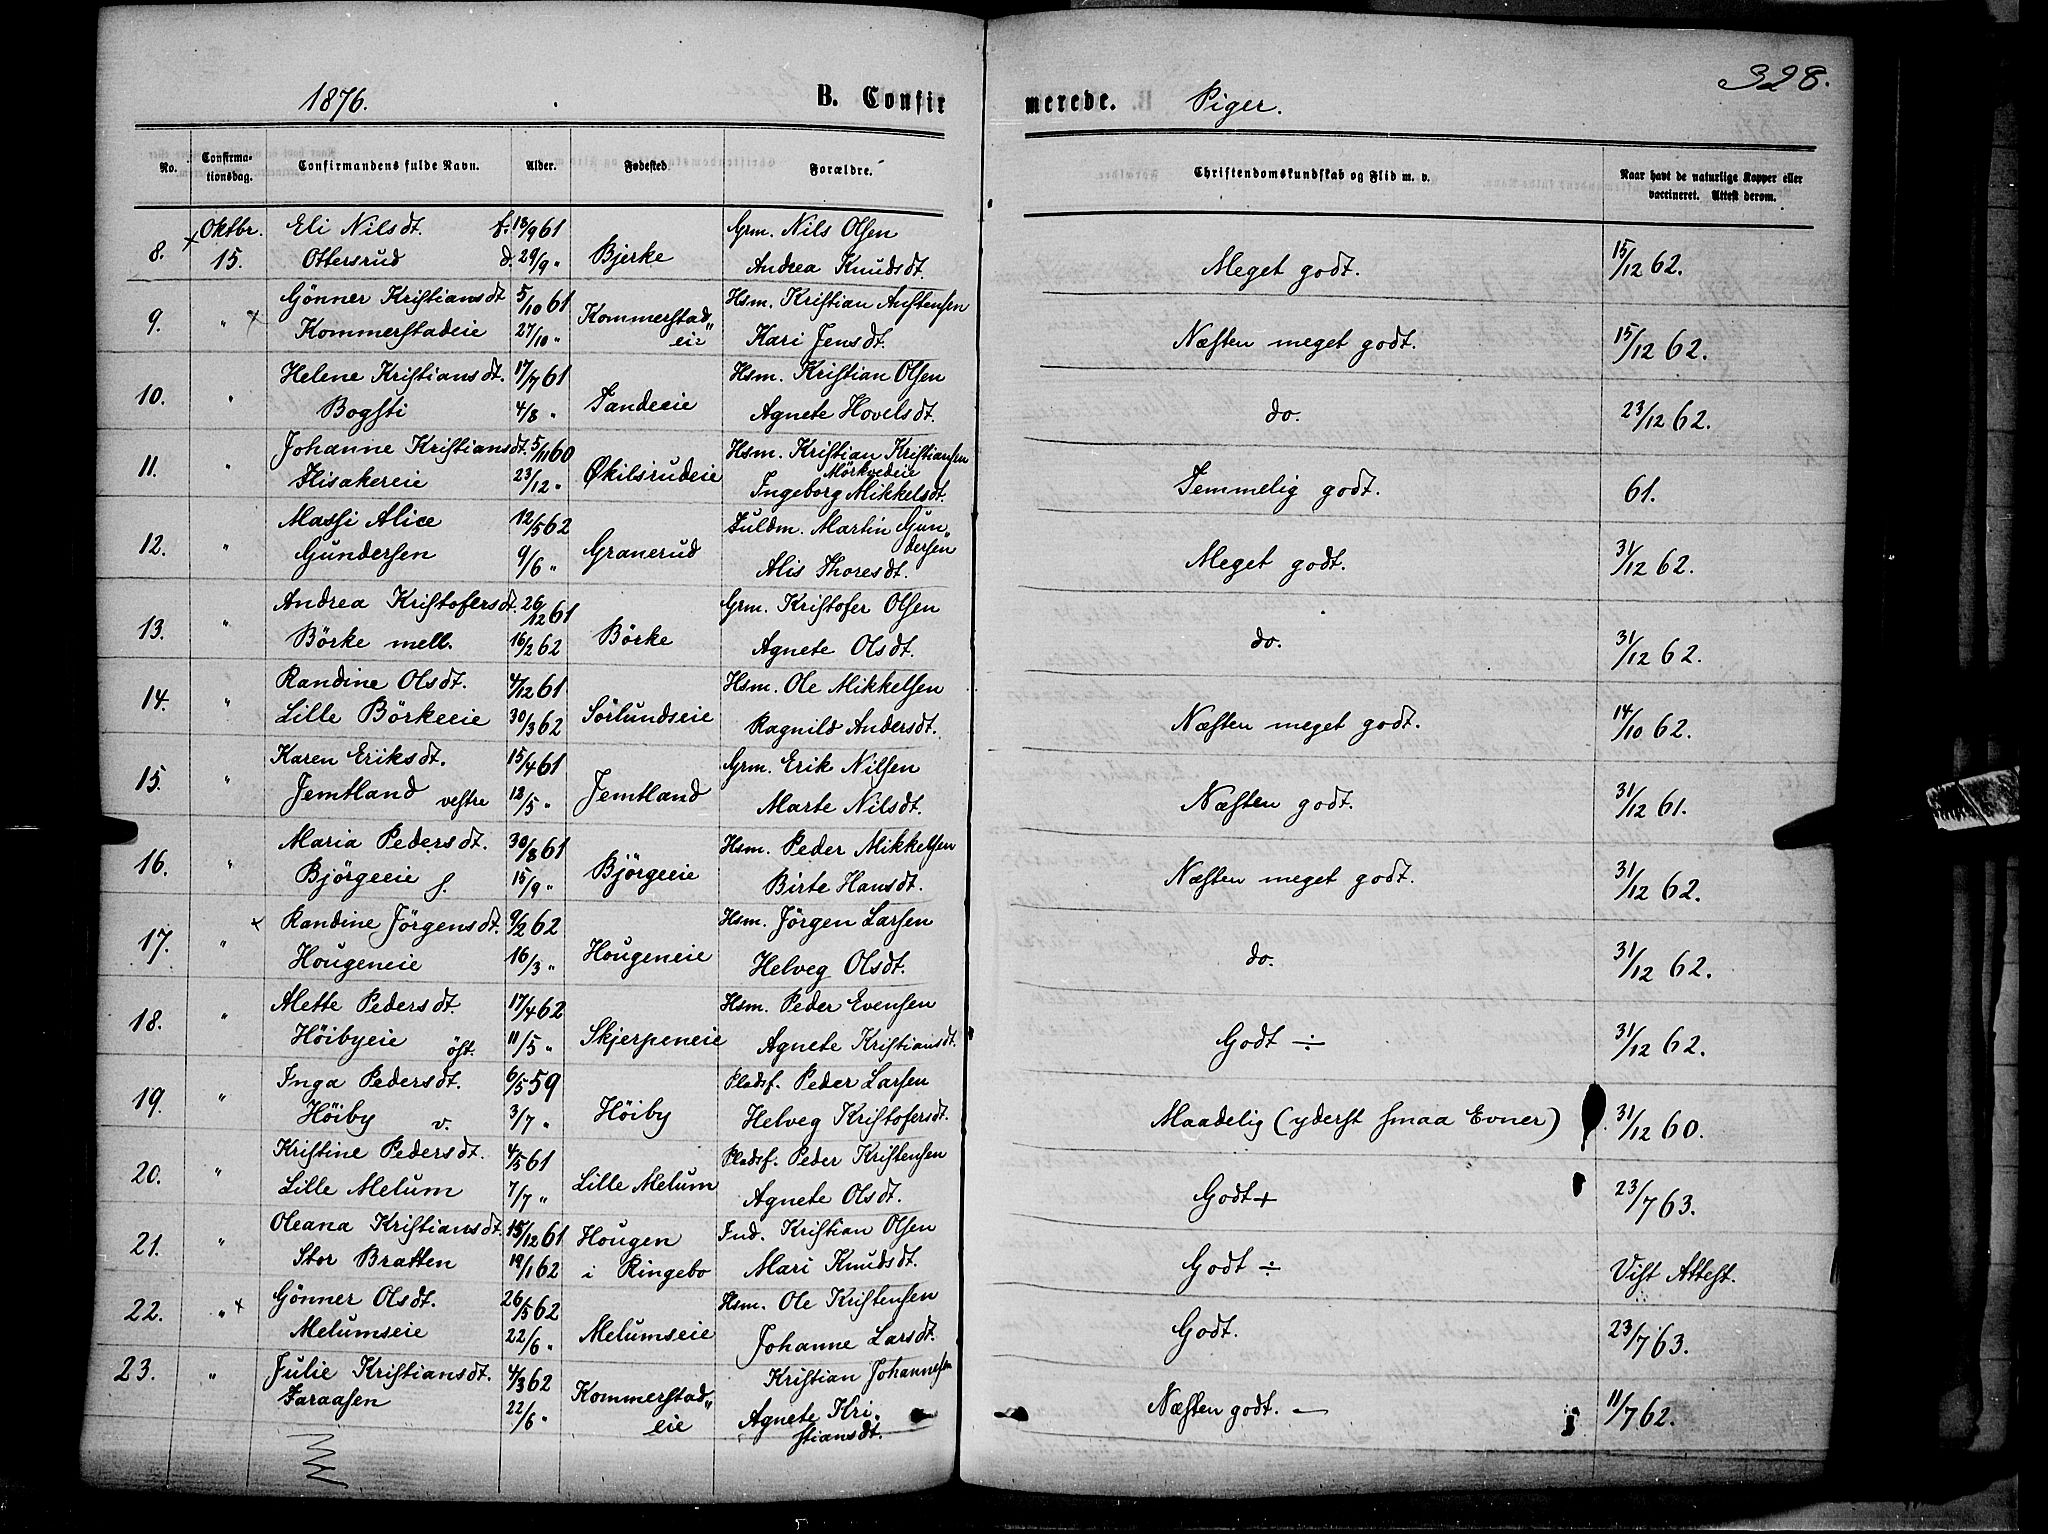 328.
1876. B. Confirmerede. Piger.
No. Confirmationsdag. Confirmandens fulde Navn. Alder. Fødested Forældre. Christendomskundskab og Flid m. v. Naar havt de naturlige Kopper eller vaccineret. Attest derom.
Oktbr. Eli Nilsdt. f. 13/9 61 Grm. Nils Olsen
8. 15. Ottersrud d. 29/9 " Bjerke Andrea Knudsdt. Meget godt. 15/12 62.
Gönner Kristiansdt 5/10 61 Hsm. Kristian Austensen
9. " Kommerstadeie 27/10 " Kommerstad" eie Kari Jensdt. Næsten meget godt. 15/12 62.
Helene Kristiansdt. 17/7 61 Hsm. Kristian Olsen
10. " Bogsti 4/8 " Sandeeie Agnete Hovelsdt. do. 23/12 62.
Johanne Kristiansdt. 5/11 60 Hsm. Kristian Kristiansen
Mörkvedeie
11. " Flisakereie 23/12 " Økilsrudeie Ingeborg Mikkelsdt. Temmelig godt. 61.
Massi Alice 12/5 62 Fuldm. Martin Gun"
dersen
12. " Gundersen 9/6 " Granerud Alis Thoresdt. Meget godt. 31/12 62.
Andrea Kristofersdt. 26/12 61 Grm. Kristofer Olsen
13. " Börke mell. 16/2 62 Börke Agnete Olsdt. do. 31/12 62.
Randine Olsdt. 4/12 61 Hsm. Ole Mikkelsen
14. " Lille Börkeeie 30/3 62 Sörlundseie Ragnild Andersdt. Næsten meget godt. 14/10 62.
Karen Eriksdt. 15/4 61 Grm. Erik Nilsen
15. " Jemtland vestre 12/5 " Jemtland Marte Nilsdt. Næsten godt. 31/12 61.
Maria Pedersdt. 30/8 61 Hsm. Peder Mikkelsen
16. " Björgeeie s. 15/9 " Björgeeie Birte Hansdt. Næsten meget godt. 31/12 62.
Randine Jörgensdt. 9/2 62 Hsm. Jörgen Larsen
17. " Hougeneie 16/3 " Hougeneie Helveg Olsdt. do. 31/12 62.
Alette Pedersdt. 17/4 62 Hsm. Peder Evensen
18. " Höibyeie öst. 11/5 " Skjerpeneie Agnete Kristiansdt. Godt ÷ 31/12 62.
Inga Pedersdt. 6/5 59 Pladsf. Peder Larsen
19. " Höiby v. 3/7 " Höiby Helveg Kristofersdt. Maadelig (yderst smaa Evner) 31/12 60.
Kristine Pedersdt. 4/5 61 Pladsf. Peder Kristensen
20. " Lille Melum 7/7 " Lille Melum Agnete Olsdt. Godt + 23/7 63.
Oleana Kristiansdt. 15/12 61 Hougen Ind. Kristian Olsen
21. " Stor Bratten 19/1 62 i Ringebo Mari Knudsdt. Godt ÷ Vist Attest.
Gönner Olsdt. 26/5 62 Hsm. Ole Kristensen
22. " Melumseie 22/6 " Melumseie Johanne Larsdt. Godt. 23/7 63.
23. " Julie Kristiansdt. 4/3 62 Kristian Johannesen
Faraasen 22/6 " Kommerstad" eie Agnete Kri"
stiansdt. Næsten godt. — 11/7 62.